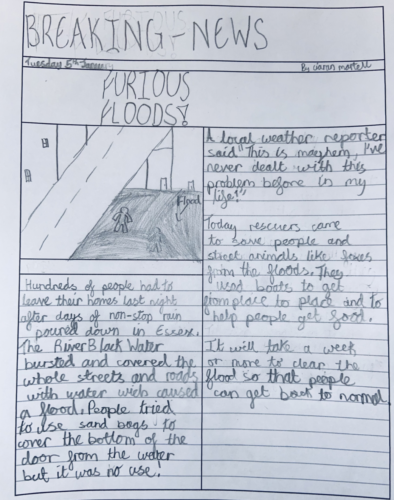 BREAKING-NEWS
Tuesday 5th January
By ciaran mortell
FURIOUS
FLOODS!
Flood
Hundreds of people had to
leave their homes last night
after days of non-stop rain
poured down in Essex.
The River Black Water
bursted and covered the
whole streets and roads
with water wich caused
a flood. People tried
to use sand bags to
cover the bottom of the
door from the water
but it was no use!
A local weather reporter
said "This is mayhem, I've
never dealt with this
problem before in my
life!"
Today rescuers came
to save people and
street animals like foxes
from the floods. They
used boats to get
from place to place and to
help people get food.
It will take a week
or more to clear the
flood so that people
can get back to normal.